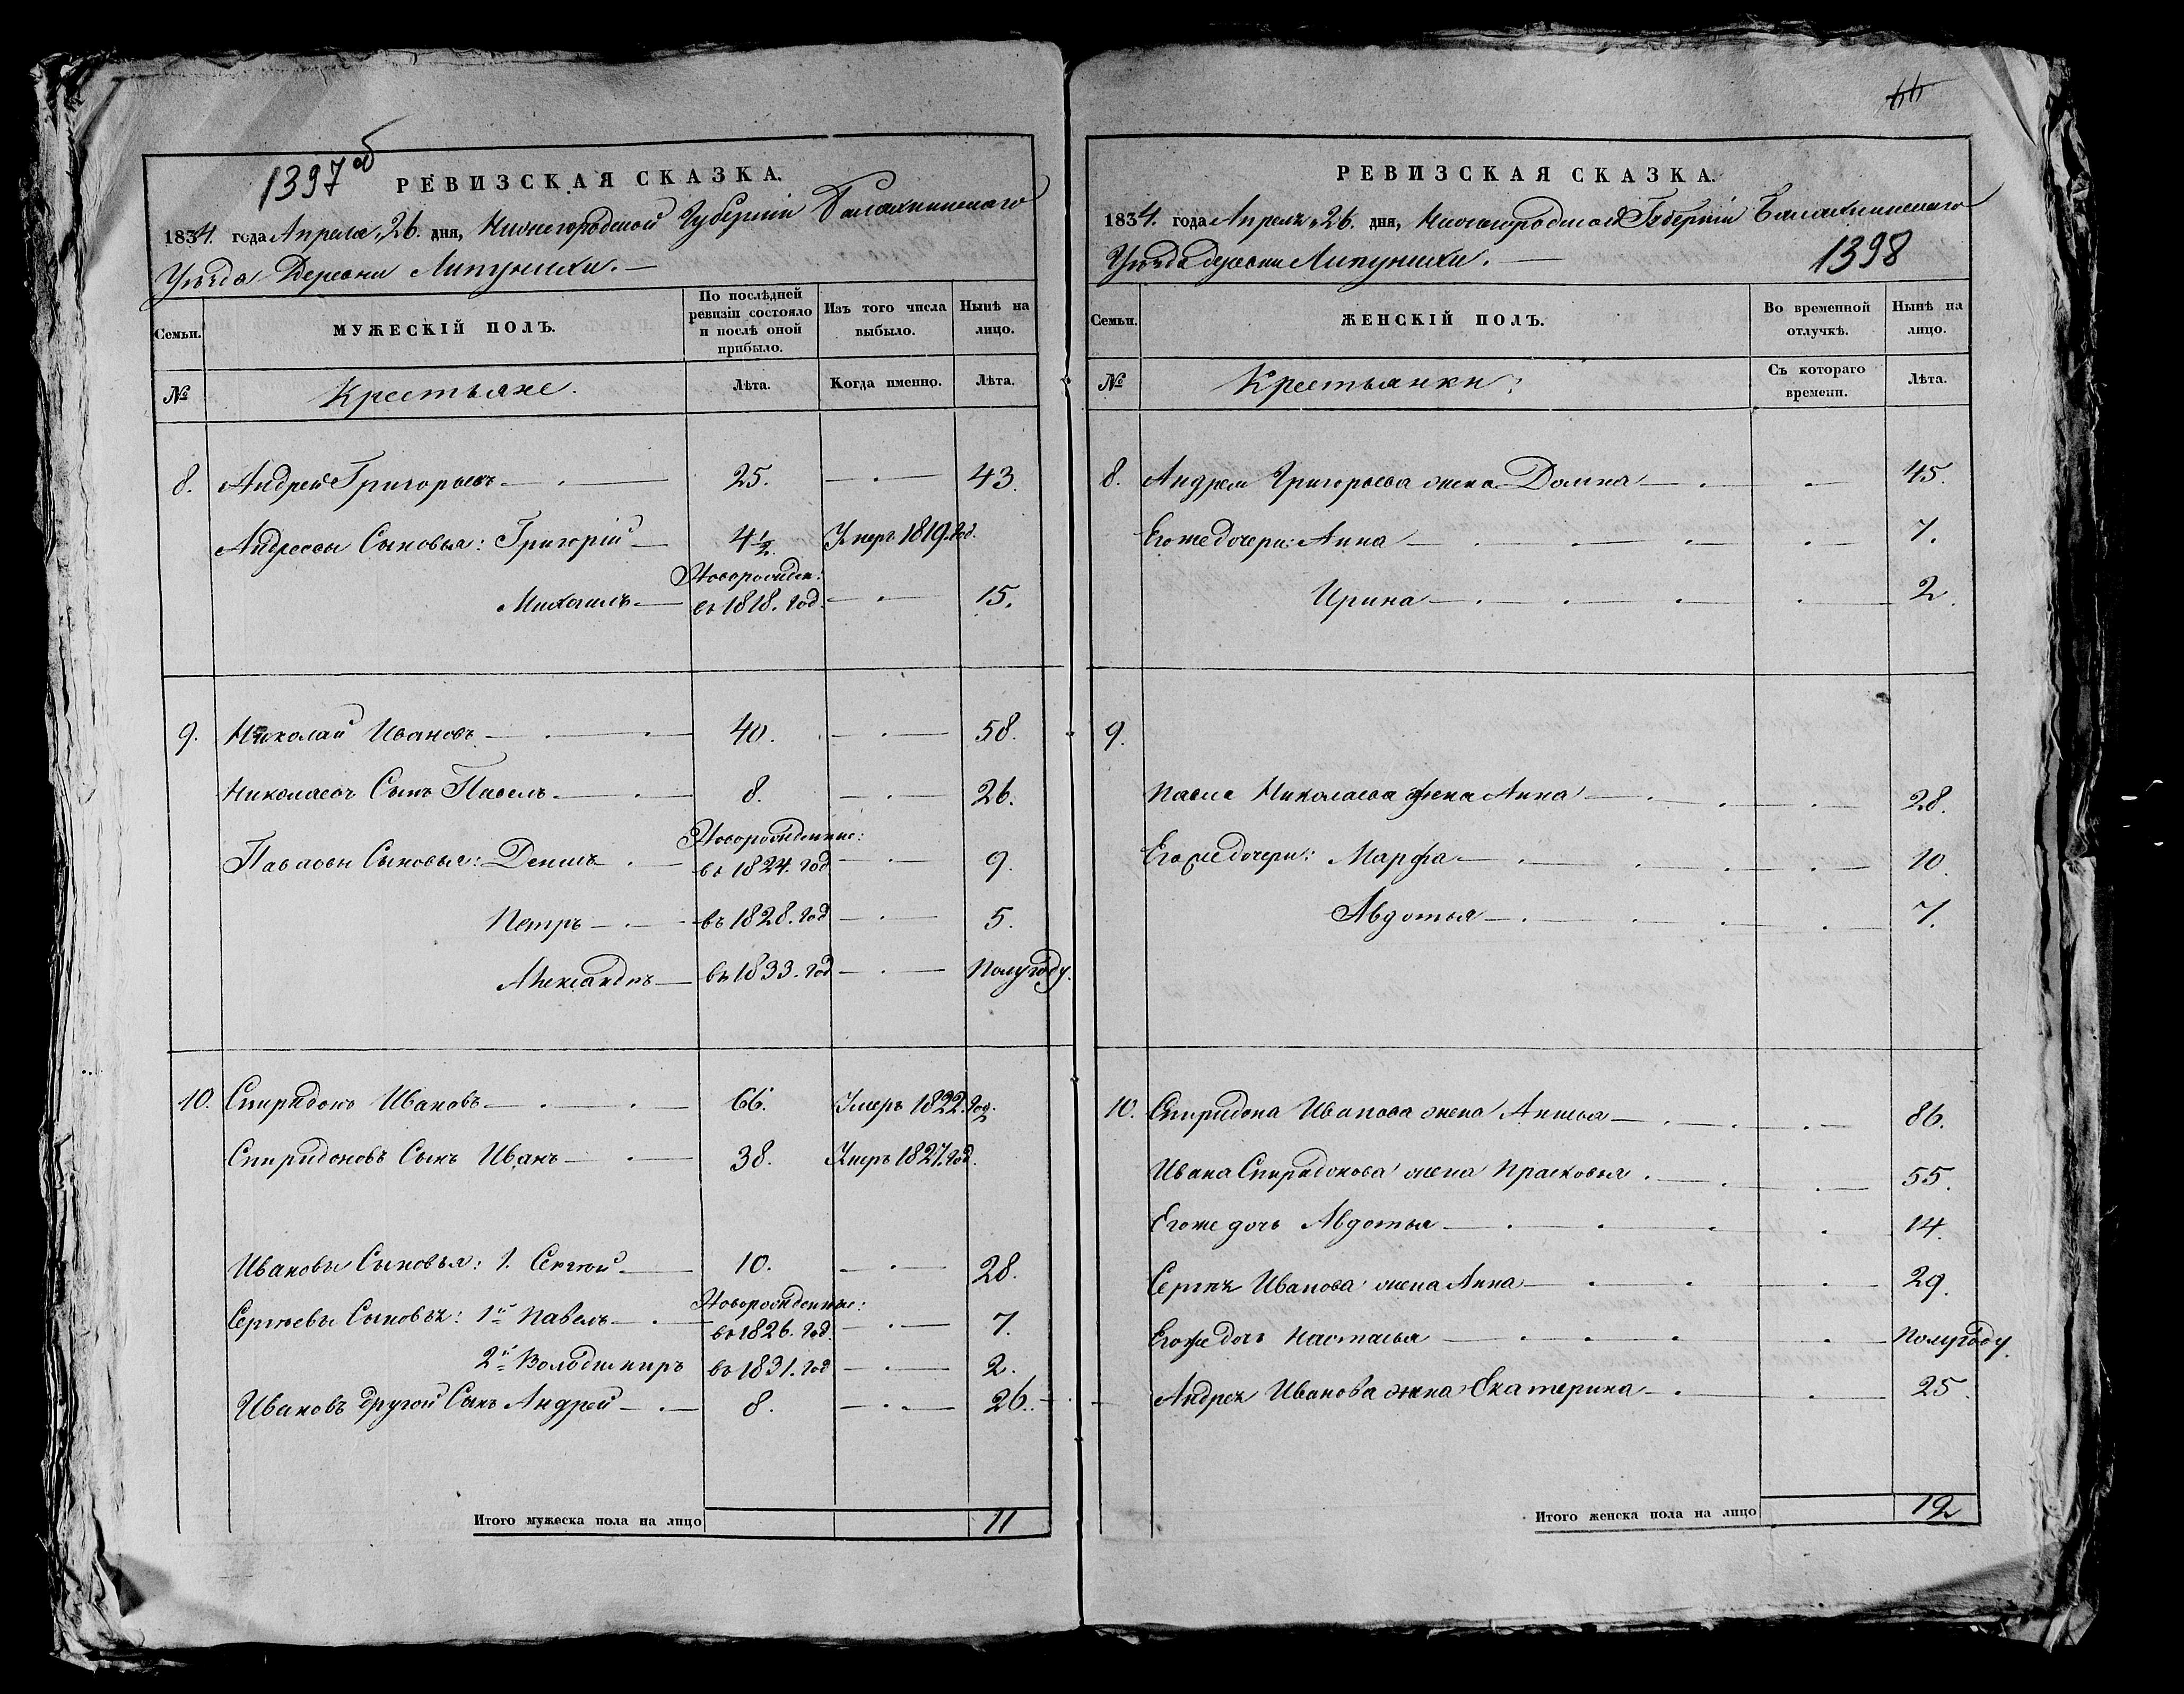 1397 об
РЕВИЗСКАЯ СКАЗКА.
1834. года Апреля „26. дня, Нижегородской Губернiи Балахнинского
Уѣзда Деревни Липунихи.
Семьи. МУЖЕСКIЙ ПОЛЪ. По послѣдней ревизiи состояло и послѣ оной прибыло. Изъ того числа выбыло. Нынѣ на лицо.
№ Крестьяне. Лѣта. Когда именно. Лѣта.
8. Андрей Григорьевъ 25. 43.
Андреевы Сыновья: Григорiй 4 1/2. Умеръ 1819. год.
Новорожден:
Михаилъ въ 1818. год. 15.
9. Николай Ивановъ 40. 58.
Николаевъ Сынъ Павелъ 8. 26.
Новорожденные:
Павловы Сыновья: Денисъ въ 1824. год 9.
Петръ въ 1828. год 5.
Александръ въ 1833. год Полугоду.
10. Спиридонъ Ивановъ 66. Умеръ 1822. год.
Спиридоновъ Сынъ Иванъ 38. Умеръ 1827. год.
Ивановы Сыновья: 1. Сергей 10. 28.
Новорожденные:
Сергѣевы Сыновья: 1й Павелъ въ 1826. год. 7.
2й Володимиръ въ 1831. год 2.
Ивановъ другой Сынъ Андрей 8. 26.
Итого мужеска пола на лицо 11
66
РЕВИЗСКАЯ СКАЗКА.
1834. года Апреля „26. дня, Нижегородской Губернiи Балахнинского
Уѣзда деревни Липунихи. 1398
Семьи. ЖЕНСКIЙ ПОЛЪ. Во временной отлучкѣ. Нынѣ на лицо.
№ Крестьянки: Съ котораго времени. Лѣта.
8. Андрея Григорьева жена Домна 45.
Егоже дочери: Анна 7.
Ирина 2.
9.
Павла Николаева жена Анна 28.
Егоже дочери: Марфа 10.
Авдотья 7.
10. Спиридона Иванова жена Анисья 86.
Ивана Спиридонова жена Прасковья 55.
Егоже дочь Авдотья 14.
Сергѣя Иванова жена Анна 29.
Егоже дочь Настасья Полугоду.
Андрея Иванова жена Екатерина 25.
Итого женска пола на лицо 12